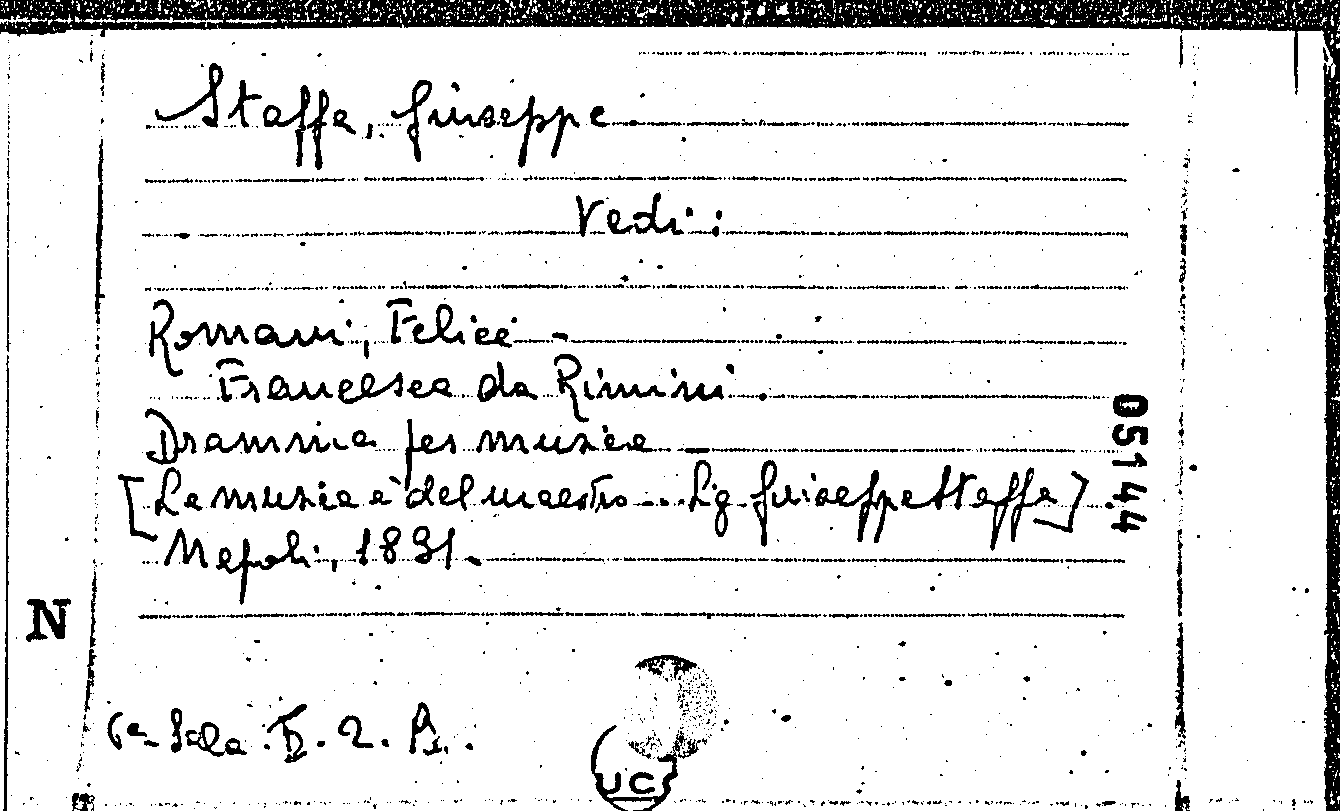 Staffa, Giuseppe.
Vedi:
Romani, Felice -
Francesca da Rimini.
Dramma per musica
[La musica è del maestro... Sig. Giuseppe Staffa]
Napoli, 1831.
05144
N
6a Sala. 2.
UC